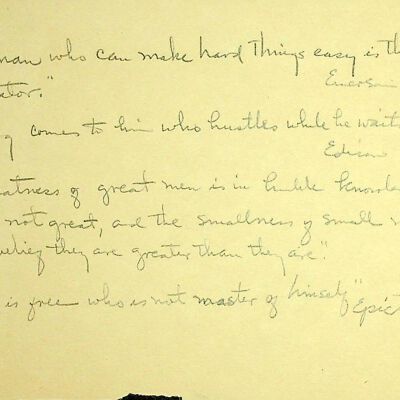 man who can make hard things easy is the
ator."
Emerson
g comes to him who hustles while he waits
Edison
eatness of great men is in humble knowled
not great, and the smallness of small m
belief they are greater than they are."
is free who is not master of himself"
Epict